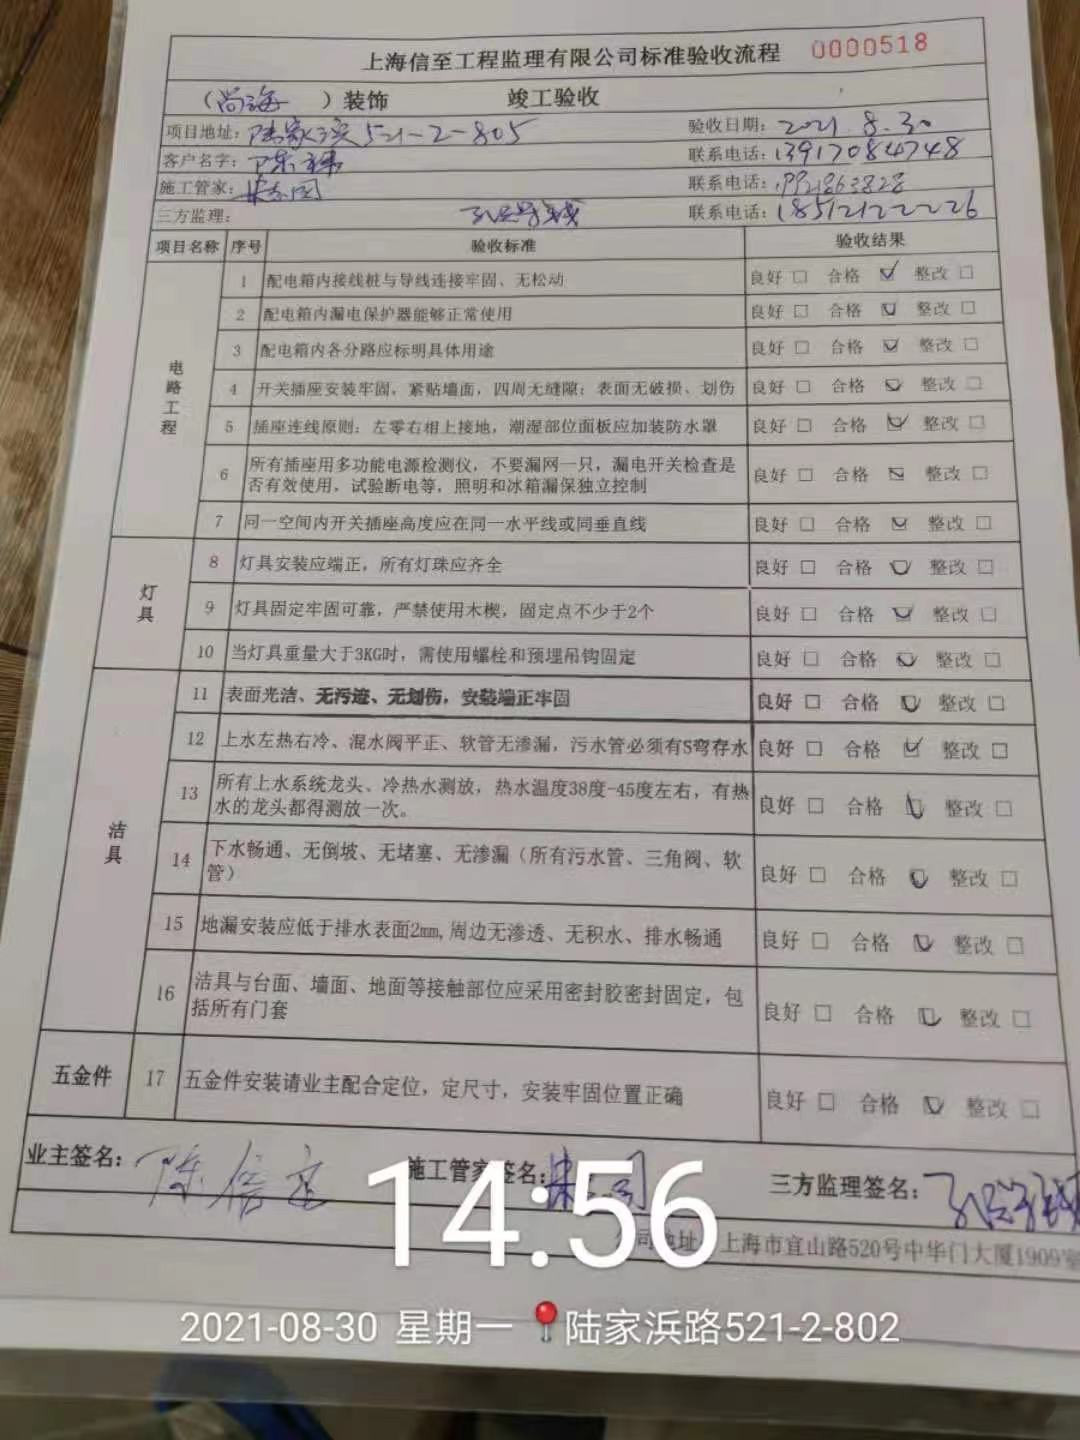 上海信至工程监理有限公司标准验收流程 0000518
（尚海 ）装饰 竣工验收
项目地址：陆家浜521-2-805 验收日期：2021.8.30
客户名字：陈 联系电话：13917084748
施工管家： 联系电话：
三方监理： 联系电话：18512122226
项目名称 序号 验收标准 验收结果
电路工程
1 配电箱内接线桩与导线连接牢固、无松动 良好 □ 合格 ☑ 整改 □
2 配电箱内漏电保护器能够正常使用 良好 □ 合格 ☑ 整改 □
3 配电箱内各分路应标明具体用途 良好 □ 合格 ☑ 整改 □
4 开关插座安装牢固，紧贴墙面，四周无缝隙；表面无破损、划伤 良好 □ 合格 ☑ 整改 □
5 插座连线原则：左零右相上接地，潮湿部位面板应加装防水罩 良好 □ 合格 ☑ 整改 □
6 所有插座用多功能电源检测仪，不要漏网一只，漏电开关检查是
否有效使用，试验断电等，照明和冰箱漏保独立控制 良好 □ 合格 ☑ 整改 □
7 同一空间内开关插座高度应在同一水平线或同垂直线 良好 □ 合格 ☑ 整改 □
灯具
8 灯具安装应端正，所有灯珠应齐全 良好 □ 合格 ☑ 整改 □
9 灯具固定牢固可靠，严禁使用木楔，固定点不少于2个 良好 □ 合格 ☑ 整改 □
10 当灯具重量大于3KG时，需使用螺栓和预埋吊钩固定 良好 □ 合格 ☑ 整改 □
洁具
11 表面光洁、无污迹、无划伤，安装端正牢固 良好 □ 合格 ☑ 整改 □
12 上水左热右冷、混水阀平正、软管无渗漏，污水管必须有S弯存水 良好 □ 合格 ☑ 整改 □
13 所有上水系统龙头、冷热水测放，热水温度38度-45度左右，有热
水的龙头都得测放一次。 良好 □ 合格 ☑ 整改 □
14 下水畅通、无倒坡、无堵塞、无渗漏（所有污水管、三角阀、软
管） 良好 □ 合格 ☑ 整改 □
15 地漏安装应低于排水表面2mm,周边无渗透、无积水、排水畅通 良好 □ 合格 ☑ 整改 □
16 洁具与台面、墙面、地面等接触部位应采用密封胶密封固定，包
括所有门套 良好 □ 合格 ☑ 整改 □
五金件 17 五金件安装请业主配合定位，定尺寸，安装牢固位置正确 良好 □ 合格 ☑ 整改 □
业主签名：陈信 施工管家签名： 三方监理签名：
公司地址：上海市宜山路520号中华门大厦1909室
14:56
2021-08-30 星期一 陆家浜路521-2-802